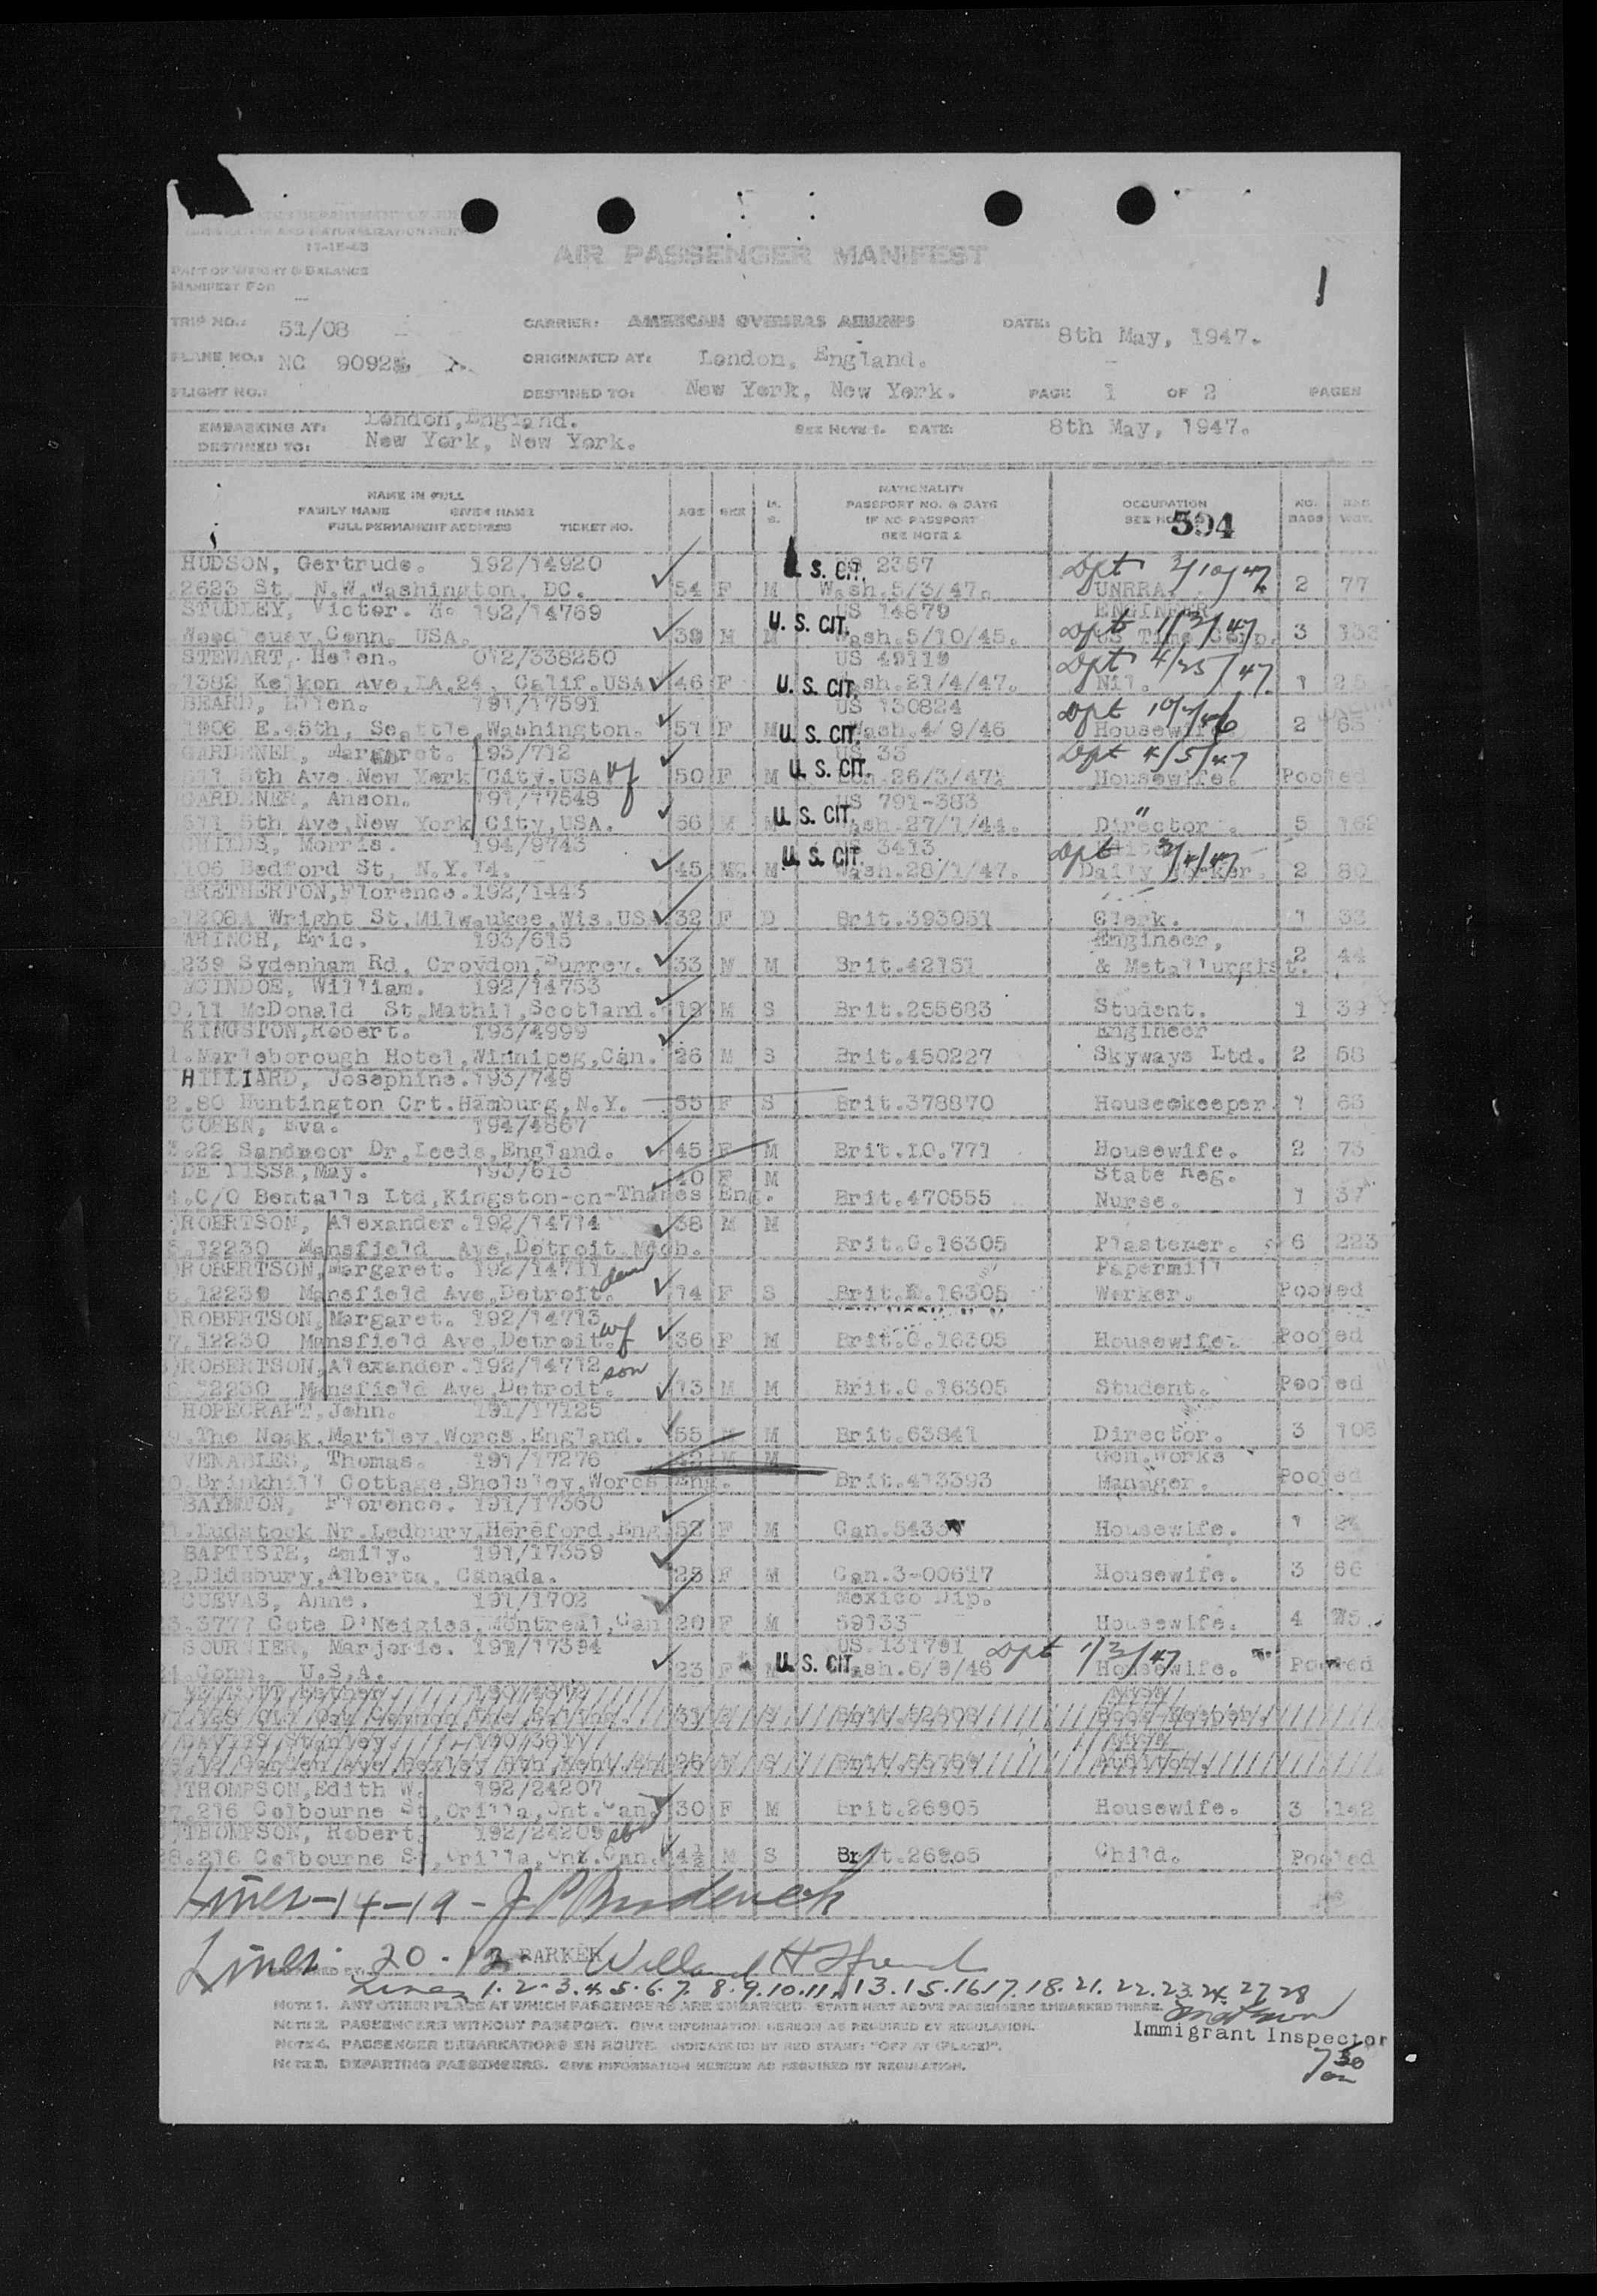 11-15-43
PART OF WEIGHT & BALANCE
MANIFEST FOR
AIR PASSENGER MANIFEST
1
TRIP NO.: 51/08 CARRIER: AMERICAN OVERSEAS AIRLINES DATE: 8th May, 1947.
PLANE NO.: NC 9092 ORIGINATED AT: London, England.
FLIGHT NO.: DESTINED TO: New York, New York. PAGE 1 OF 2 PAGES
EMBARKING AT: London, England. SEE NOTE 1. DATE: 8th May, 1947.
DESTINED TO: New York, New York.
NAME IN FULL
FAMILY NAME GIVEN NAME
FULL PERMANENT ADDRESS TICKET NO.
AGE SEX M. S.
NATIONALITY
PASSPORT NO. & DATE
IF NO PASSPORT
SEE NOTE 2
OCCUPATION
SEE NOTE 594
NO. BAGS BAG WGT.
HUDSON, Gertrude. 192/14920 U.S. CIT. 2357 Dpt 2/10/47
2623 St N.W.Washington, DC. 54 F M Wash.5/3/47. UNRRA. 2 77
STUDLEY, Victor. 192/14769 U.S. CIT. US 14879 ENGINEER Dpt 1/3/47
Woodbury,Conn. USA. 39 M M Wash.5/10/45. US Time Corp. 3
STEWART, Helen. 012/338250 US 49119 Dpt 4/25/47
1382 Kelton Ave,LA,24, Calif.USA 46 F U.S. CIT. Wash.21/4/47. Nil. 1
BEARD, Ellen. 191/17591 US 130824 Dpt
1906 E.45th, Seattle,Washington. 51 F M U.S. CIT. Wash.4/9/46 Housewife. 2 65
GARDENER, Margaret. 193/712 US 35 Dpt 4/5/47
511 5th Ave New York City.USA wf 50 F M U.S. CIT. 26/3/47. Housewife. Pooled
GARDENER, Anson. 191/17548 US 791-383
511 5th Ave,New York City,USA. 56 M M U.S. CIT. Wash.27/1/44. Director. 5 162
CHILDS, Morris. 194/9743 U.S. CIT. 3413 Dpt 3/4/47
106 Bedford St, N.Y.14. 45 M M Wash.28/1/47. Daily Worker. 2 80
BRETHERTON,Florence.192/1443
1208A Wright St,Milwaukee,Wis.USA 32 F D Brit.393051 Clerk. 1 33
WRINCH, Eric. 193/615 Engineer,
239 Sydenham Rd, Croydon,Surrey. 33 M M Brit.42151 & Metallurgist. 2 44
MCINDOE, William. 192/14753
0.11 McDonald St,Mathil,Scotland. 19 M S Brit.255683 Student. 1 39
KINGSTON,Robert. 193/4999 Engineer
1.Marlborough Hotel,Winnipeg,Can. 26 M S Brit.450227 Skyways Ltd. 2 58
HILLIARD, Josephine.193/749
2.80 Huntington Crt.Hamburg,N.Y. 55 F S Brit.378870 Housekeeper. 1 63
COHEN, Eva. 194/4867
3.22 Sandmoor Dr,Leeds,England. 45 F M Brit.10.771 Housewife. 2 73
DE LISSA,May. 193/613 40 F M State Reg.
4.C/O Bentalls Ltd,Kingston-on-Thames Eng. Brit.470555 Nurse. 1 37
ROBERTSON, Alexander.192/14714 38 M M
12230 Mansfield Ave,Detroit Mich. Brit.C.16305 Plasterer. 6 223
ROBERTSON,Margaret. 192/14711 Papermill
12230 Mansfield Ave,Detroit. 14 F S Brit.C.16305 Worker. Pooled
ROBERTSON,Margaret. 192/14713
7.12230 Mansfield Ave,Detroit. wf 36 F M Brit.C.16305 Housewife. Pooled
ROBERTSON,Alexander.192/14712 son
8.12230 Mansfield Ave,Detroit. 13 M M Brit.C.16305 Student. Pooled
HOPECRAFT,John. 191/17125
9.The Noak,Martley,Worcs.England. 55 M M Brit.63841 Director. 3 103
VENABLES, Thomas. 191/17276 M M Gen.Works
0.Brinkhill Cottage,Shelsley,Worcs Eng. Brit.413393 Manager. Pooled
BAYNTON, Florence. 191/17360
1.Ludstock Nr.Ledbury,Hereford,Eng 52 F M Can.5433 Housewife. 1
BAPTISTE, Emily. 191/17359
2.Didsbury,Alberta, Canada. 23 F M Can.3-00617 Housewife. 3 66
CUEVAS, Anne. 191/1702 Mexico Dip.
3.3777 Cote D'Neigies,Montreal,Can 20 F M 59133 Housewife. 4
SOURNIER, Marjorie. 191/17394 US 131791 Dpt 1/3/47
Conn. U.S.A. 23 F M U.S. CIT. Wash.6/9/46 Housewife. Pooled
THOMPSON,Edith W. 192/24207
7.216 Colbourne St,Orilla,Ont.Can. 30 F M Brit.26905 Housewife. 3 142
THOMPSON, Robert. 192/24208
8.216 Colbourne St,Orilla,Ont.Can. 4½ M S Brit.26905 Child. Pooled
Lines-14-19-
Lines 20-12 BARKER
Lines 1.2.3.4.5.6.7.8.9.10.11.13.15.16.17.18.21.22.23.24.27.28
NOTE 1. ANY OTHER PLACE AT WHICH PASSENGERS ARE EMBARKED. STATE HERE ABOVE PASSENGERS EMBARKED THERE.
NOTE 2. PASSENGERS WITHOUT PASSPORT. GIVE INFORMATION HEREON AS REQUIRED BY REGULATION.
NOTE 4. PASSENGER DEBARKATIONS EN ROUTE INDICATE(D) BY RED STAMP: "OFF AT (PLACE)".
NOTE 5. DEPARTING PASSENGERS. GIVE INFORMATION HEREON AS REQUIRED BY REGULATION.
Immigrant Inspector
7 30